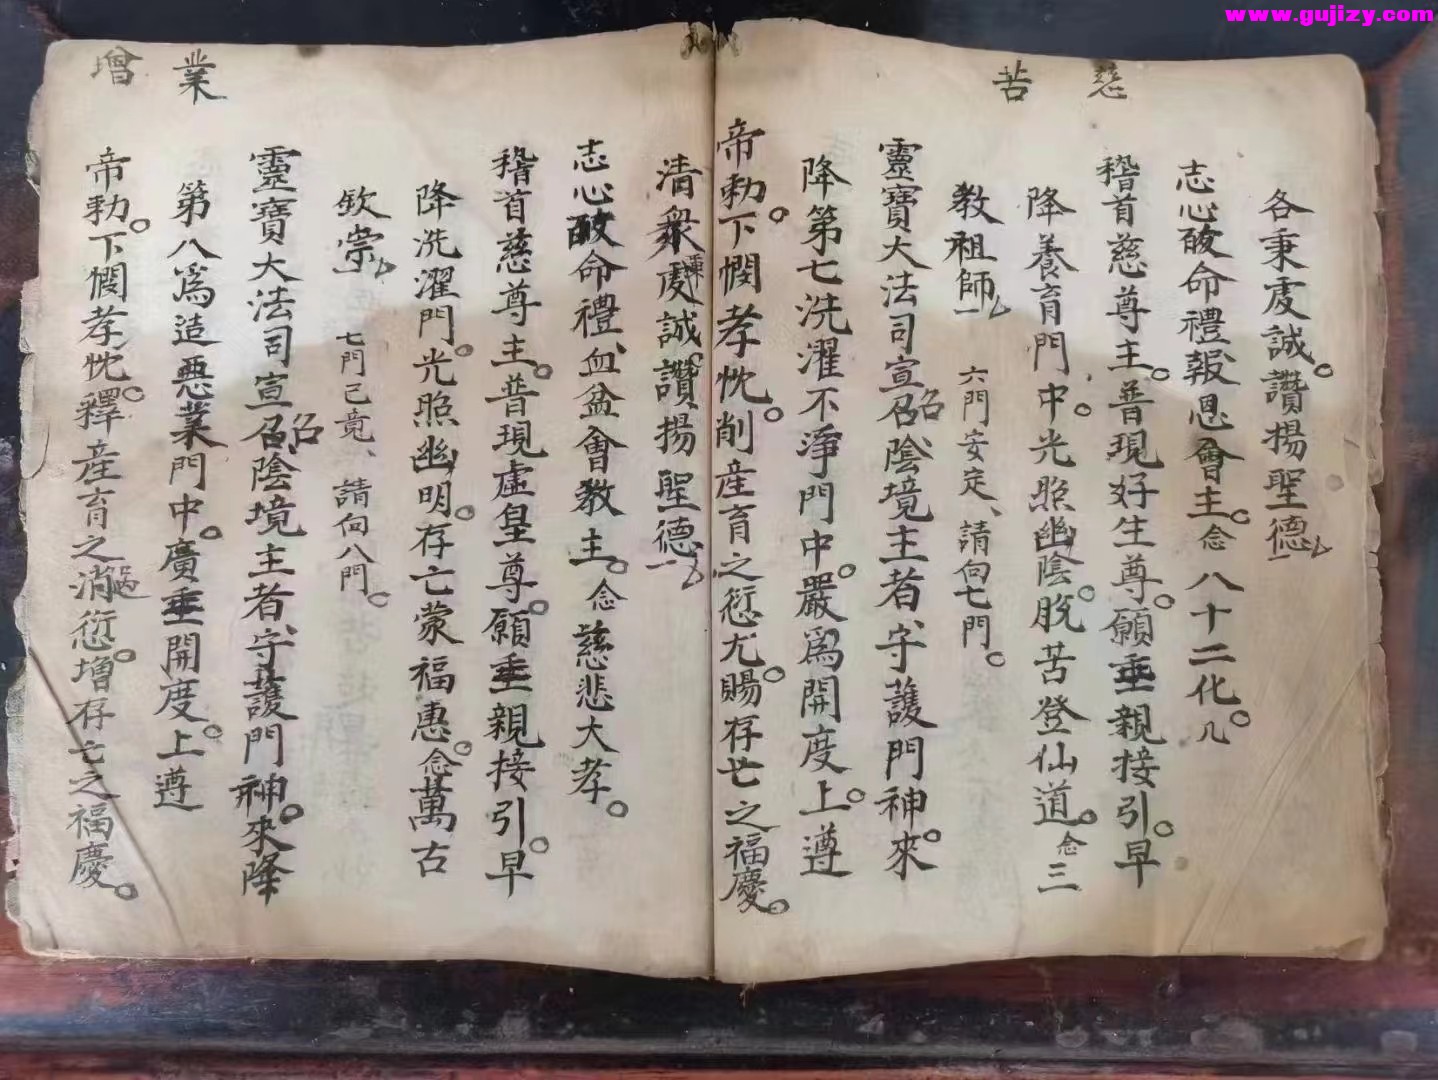 www.gujizy.com
慈 苦
各秉虔誠。讚揚聖德
志心皈命禮報恩會主。念八十二化。凡
稽首慈尊主。普現好生尊。願垂親接引。早
降養育門中。光照幽陰。脫苦登仙道。念三
教祖師 六門安定、請向七門。
靈寶大法司宣召陰境主者、守護門神。來
降第七洗濯不淨門中。嚴爲開度。上遵
帝勅。下憫孝忱。削産育之愆尤。賜存亡之福慶。
業 增
清衆虔誠讚揚聖德
志心皈命禮血盆會教主。念慈悲大孝。
稽首慈尊主。普現虛皇尊。願垂親接引。早
降洗濯門。光照幽明。存亡蒙福惠。念萬古
欽崇 七門已竟、請向八門。
靈寶大法司宣召陰境主者、守護門神。來降
第八爲造惡業門中。廣垂開度。上遵
帝勅。下憫孝忱。釋産育之消愆。增存亡之福慶。